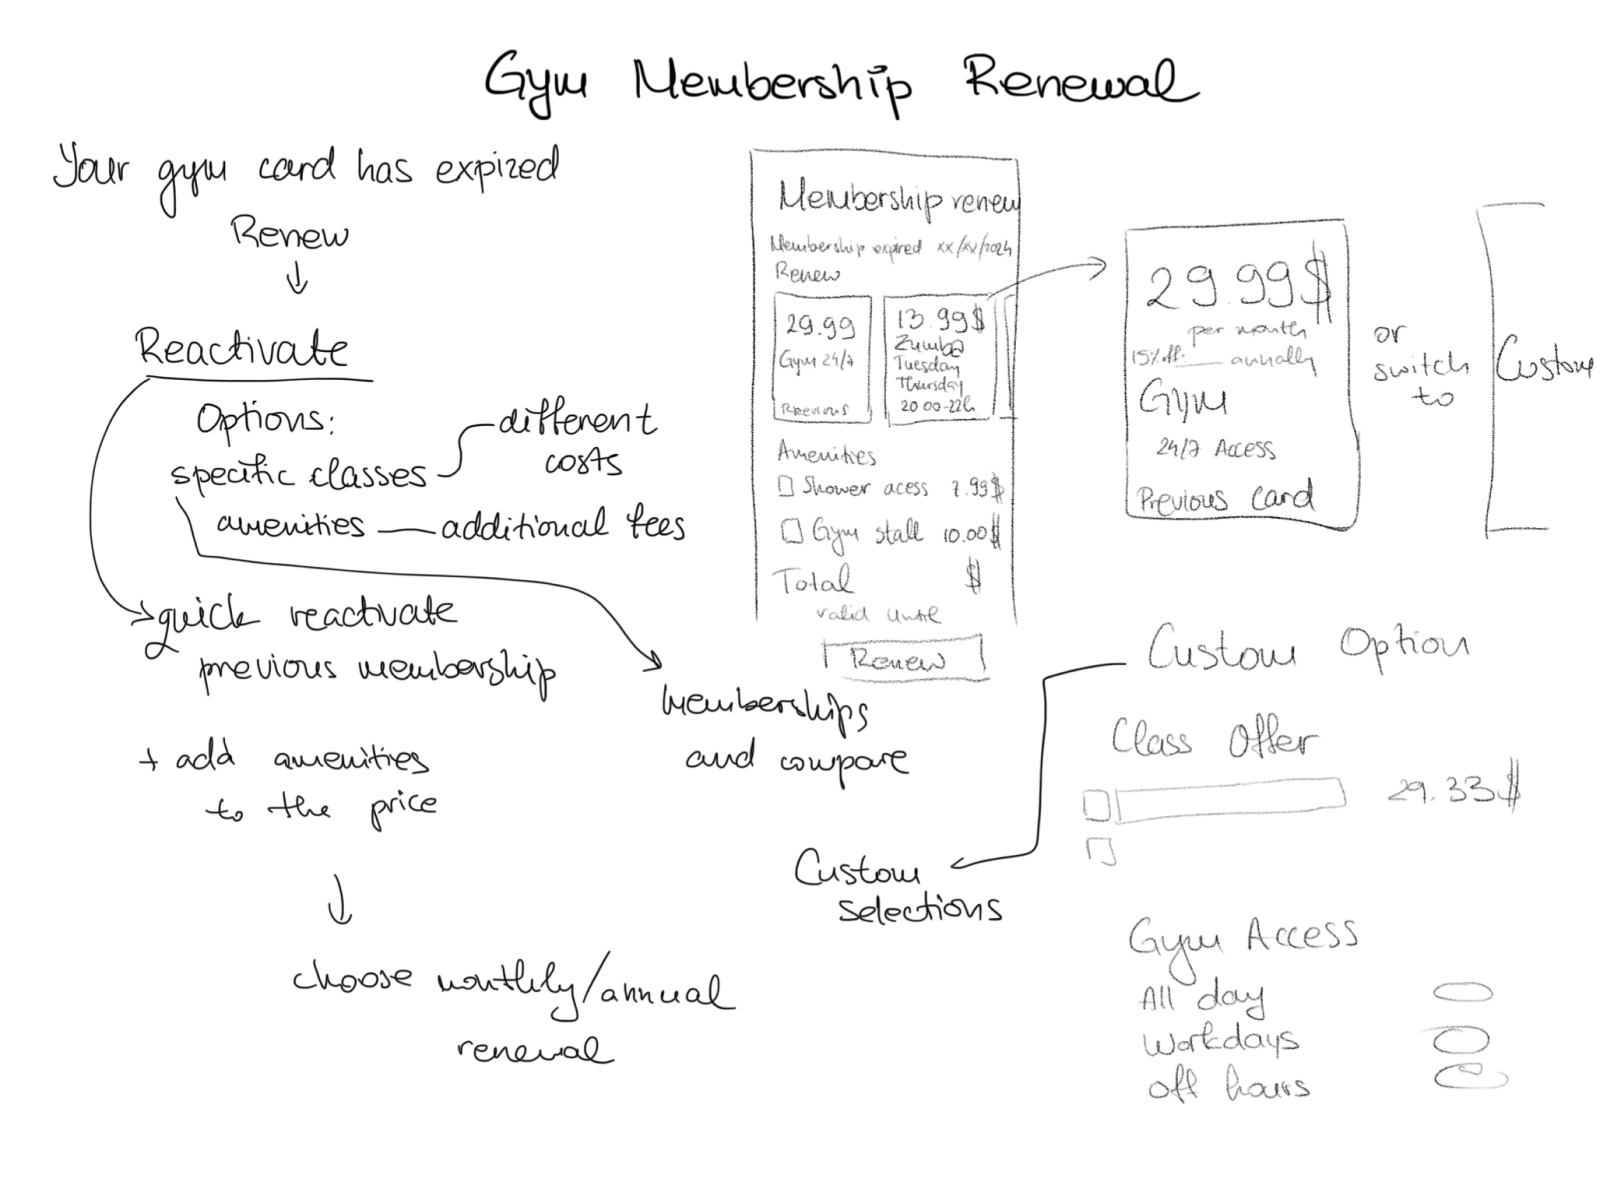 Gym Membership Renewal
Your gym card has expired
Renew
Reactivate
Options:
specific classes
different
costs
amenities
additional fees
quick reactivate
previous membership
+ add amenities
to the price
choose monthly/annual
renewal
Memberships
and compare
Membership renew
Membership expired xx/xx/2024
Renew
29.99
Gym 24/7
Previous
13.99$
Zumba
Tuesday
Thursday
20 00-22h
Amenities
Shower acess 7.99$
Gym stall 10.00$
Total $
valid until
Renew
29.99$
per month
15% off. annually
Gym
24/7 Access
Previous card
or
switch
to
Custom
Custom Option
Class Offer
29.33$
Custom
selections
Gym Access
All day
Workdays
off hours